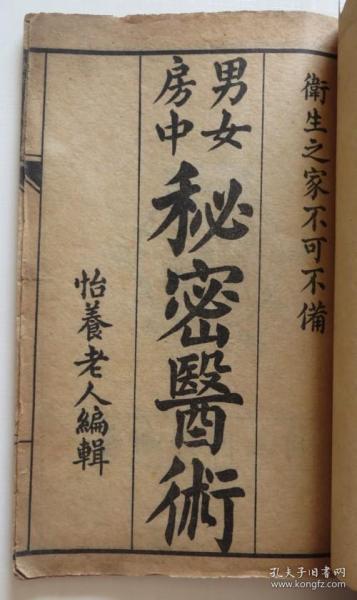 衛生之家不可不備
男女
房中
秘密醫術
怡養老人編輯
孔夫子旧书网
kongfz.com